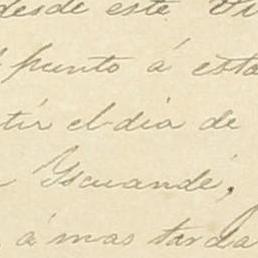 desde este
punto á esta
tir el dia de
Yscuandé,
á mas tarda